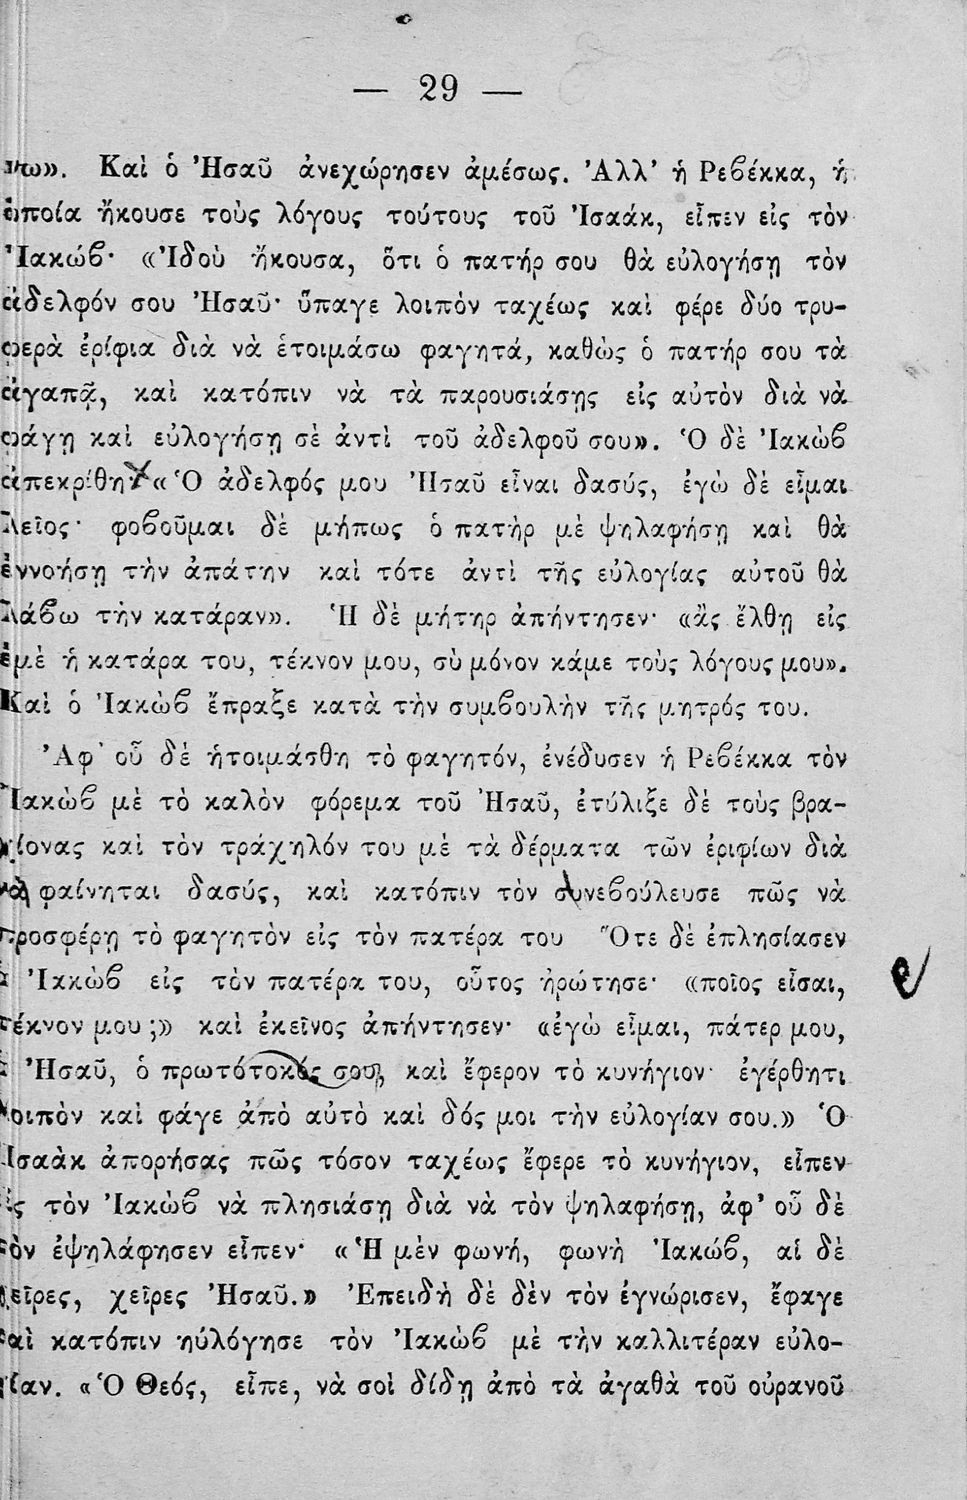 — 29 —
Καὶ ὁ Ἠσαῦ ἀνεχώρησεν ἀμέσως. Ἀλλ' ἡ Ρεβέκκα, ἡ
ὁποία ἤκουσε τοὺς λόγους τούτους τοῦ Ἰσαάκ, εἶπεν εἰς τὸν
Ἰακώβ· «Ἰδοὺ ἤκουσα, ὅτι ὁ πατήρ σου θὰ εὐλογήσῃ τὸν
ἀδελφόν σου Ἠσαῦ· ὕπαγε λοιπὸν ταχέως καὶ φέρε δύο τρυ-
φερὰ ἐρίφια διὰ νὰ ἑτοιμάσω φαγητά, καθὼς ὁ πατήρ σου τὰ
ἀγαπᾷ, καὶ κατόπιν νὰ τὰ παρουσιάσῃς εἰς αὐτὸν διὰ νὰ
φάγῃ καὶ εὐλογήσῃ σὲ ἀντὶ τοῦ ἀδελφοῦ σου». Ὁ δὲ Ἰακὼβ
ἀπεκρίθη «Ὁ ἀδελφός μου Ἠσαῦ εἶναι δασύς, ἐγὼ δὲ εἶμαι
λεῖος· φοβοῦμαι δὲ μήπως ὁ πατὴρ μὲ ψηλαφήσῃ καὶ θὰ
ἐννοήσῃ τὴν ἀπάτην καὶ τότε ἀντὶ τῆς εὐλογίας αὐτοῦ θὰ
λάβω τὴν κατάραν». Ἡ δὲ μήτηρ ἀπήντησεν· «ἂς ἔλθῃ εἰς
ἐμὲ ἡ κατάρα του, τέκνον μου, σὺ μόνον κάμε τοὺς λόγους μου».
Καὶ ὁ Ἰακὼβ ἔπραξε κατὰ τὴν συμβουλὴν τῆς μητρός του.
Ἀφ' οὗ δὲ ἡτοιμάσθη τὸ φαγητόν, ἐνέδυσεν ἡ Ρεβέκκα τὸν
Ἰακὼβ μὲ τὸ καλὸν φόρεμα τοῦ Ἠσαῦ, ἐτύλιξε δὲ τοὺς βρα-
χίονας καὶ τὸν τράχηλόν του μὲ τὰ δέρματα τῶν ἐριφίων διὰ
νὰ φαίνηται δασύς, καὶ κατόπιν τὸν συνεβούλευσε πῶς νὰ
προσφέρῃ τὸ φαγητὸν εἰς τὸν πατέρα του Ὅτε δὲ ἐπλησίασεν
ὁ Ἰακὼβ εἰς τὸν πατέρα του, οὗτος ἠρώτησε· «ποῖος εἶσαι,
τέκνον μου;» καὶ ἐκεῖνος ἀπήντησεν· «ἐγὼ εἶμαι, πάτερ μου,
ὁ Ἠσαῦ, ὁ πρωτότοκός σου, καὶ ἔφερον τὸ κυνήγιον· ἐγέρθητι
λοιπὸν καὶ φάγε ἀπὸ αὐτὸ καὶ δός μοι τὴν εὐλογίαν σου.» Ὁ
Ἰσαὰκ ἀπορήσας πῶς τόσον ταχέως ἔφερε τὸ κυνήγιον, εἶπεν
εἰς τὸν Ἰακὼβ νὰ πλησιάσῃ διὰ νὰ τὸν ψηλαφήσῃ, ἀφ' οὗ δὲ
τὸν ἐψηλάφησεν εἶπεν· «Ἡ μὲν φωνή, φωνὴ Ἰακώβ, αἱ δὲ
χεῖρες, χεῖρες Ἠσαῦ.» Ἐπειδὴ δὲ δὲν τὸν ἐγνώρισεν, ἔφαγε
καὶ κατόπιν ηὐλόγησε τὸν Ἰακὼβ μὲ τὴν καλλιτέραν εὐλο-
γίαν. «Ὁ Θεός, εἶπε, νὰ σοὶ δίδῃ ἀπὸ τὰ ἀγαθὰ τοῦ οὐρανοῦ